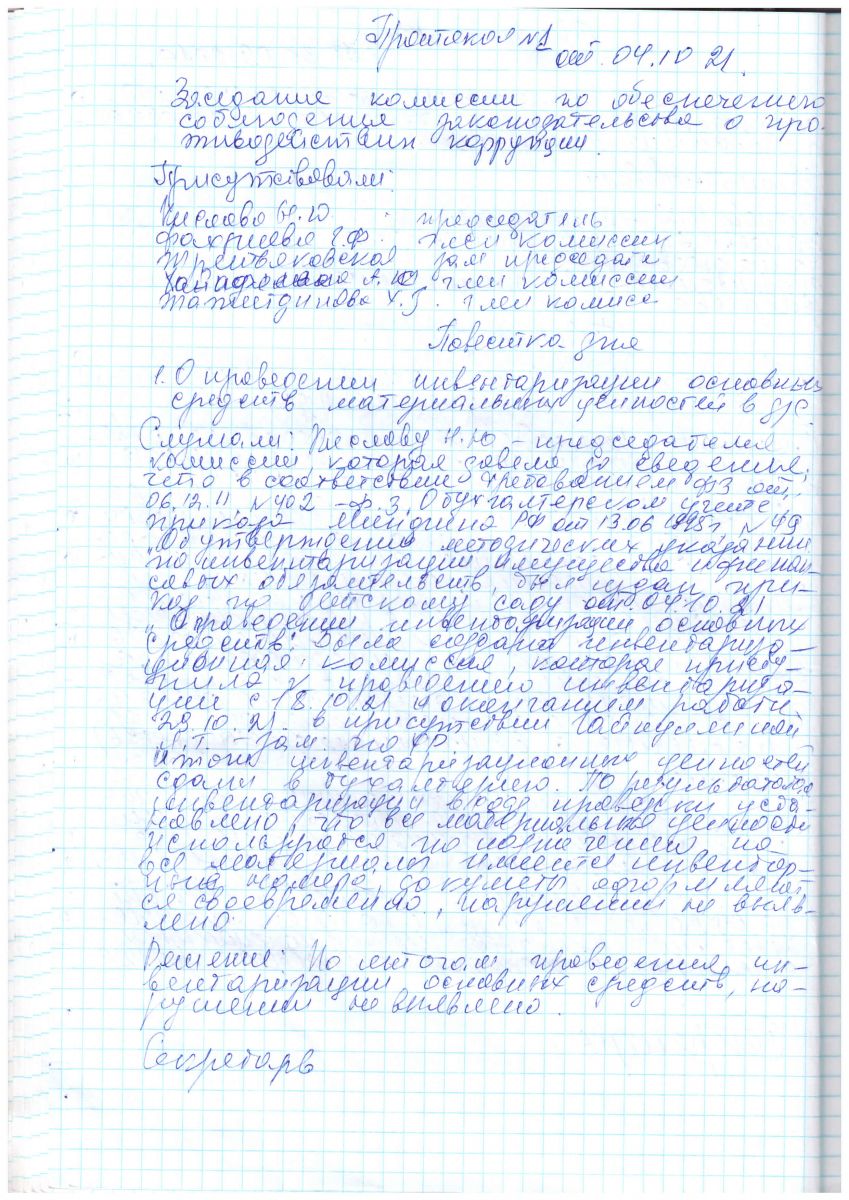 Протокол №1
от. 04.10 21.
Заседание комиссии по обеспечению
соблюдения законодательства о про-
тиводействии коррупции.
Присутствовали:
Кислова Н.Ю. председатель
Фахриева Г.Ф. член комиссии
Третьяковская зам председат
А.Ю член комиссии
Тажитдинова Х.Г. член комисс
Повестка дня
1. О проведении инвентаризации основных
средств материальных ценностей в д/с.
Слушали: Кислову Н.Ю – председателя
комиссии, которая довела до сведения,
что в соответствии с требованием ФЗ от.
06.12.11 №402 -ф.з. О бухгалтерском учете,
приказа Минфина РФ от 13.06 1995г. №49
"Об утверждении методических указаний
по инвентаризации имущества и финан-
совых обязательств, был издан при-
каз по детскому саду от. 04.10.21
"О проведении инвентаризации основных
средств". Была создана инвентариза-
ционная комиссия, которая присту-
пила к проведению инвентариза-
ции с 18.10.21 и окончанием работы
29.10.21. в присутствии
Л.Т. – зам. по
Итоги инвентаризационных ценностей
сдали в бухгалтерию. По результатам
инвентаризации в ходе проверки уста-
новлено что все материальные ценности
используются по назначению на
все материалы имеется инвентар-
ные номера, документы оформляют-
ся своевременно, нарушений не выяв-
лено.
Решение: По итогам проведения ин-
вентаризации основных средств, на-
рушений не выявлено.
Секретарь